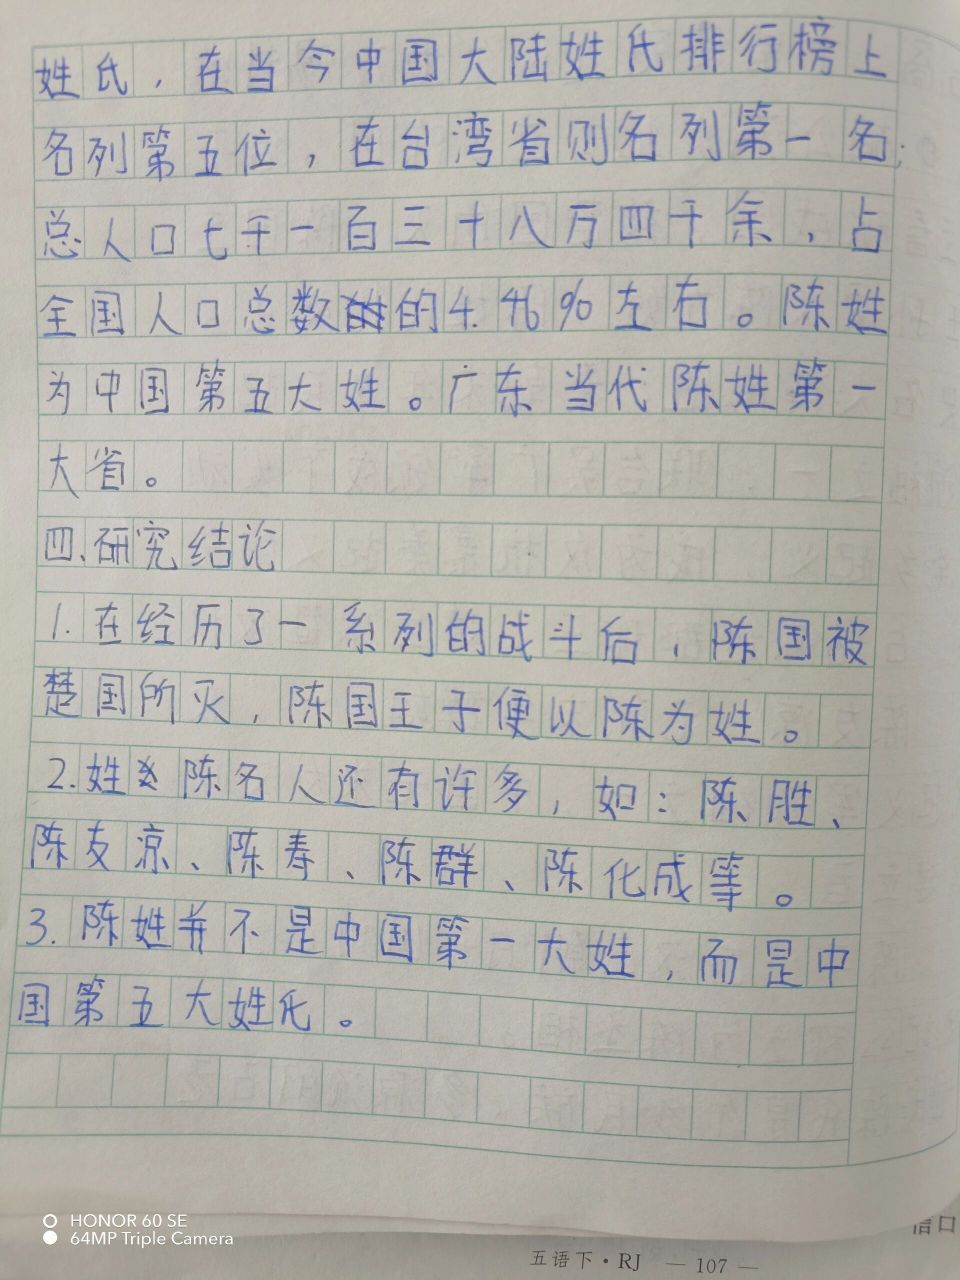 姓氏，在当今中国大陆姓氏排行榜上
名列第五位，在台湾省则名列第一名；
总人口七千一百三十八万四千余，占
全国人口总数的4.46%左右。陈姓
为中国第五大姓。广东当代陈姓第一
大省。
四、研究结论
1.在经历了一系列的战斗后，陈国被
楚国所灭，陈国王子便以陈为姓。
2.姓陈名人还有许多，如：陈胜、
陈友凉、陈寿、陈群、陈化成等。
3.陈姓并不是中国第一大姓，而是中
国第五大姓氏。
HONOR 60 SE
64MP Triple Camera
信口
五语下·RJ — 107 —